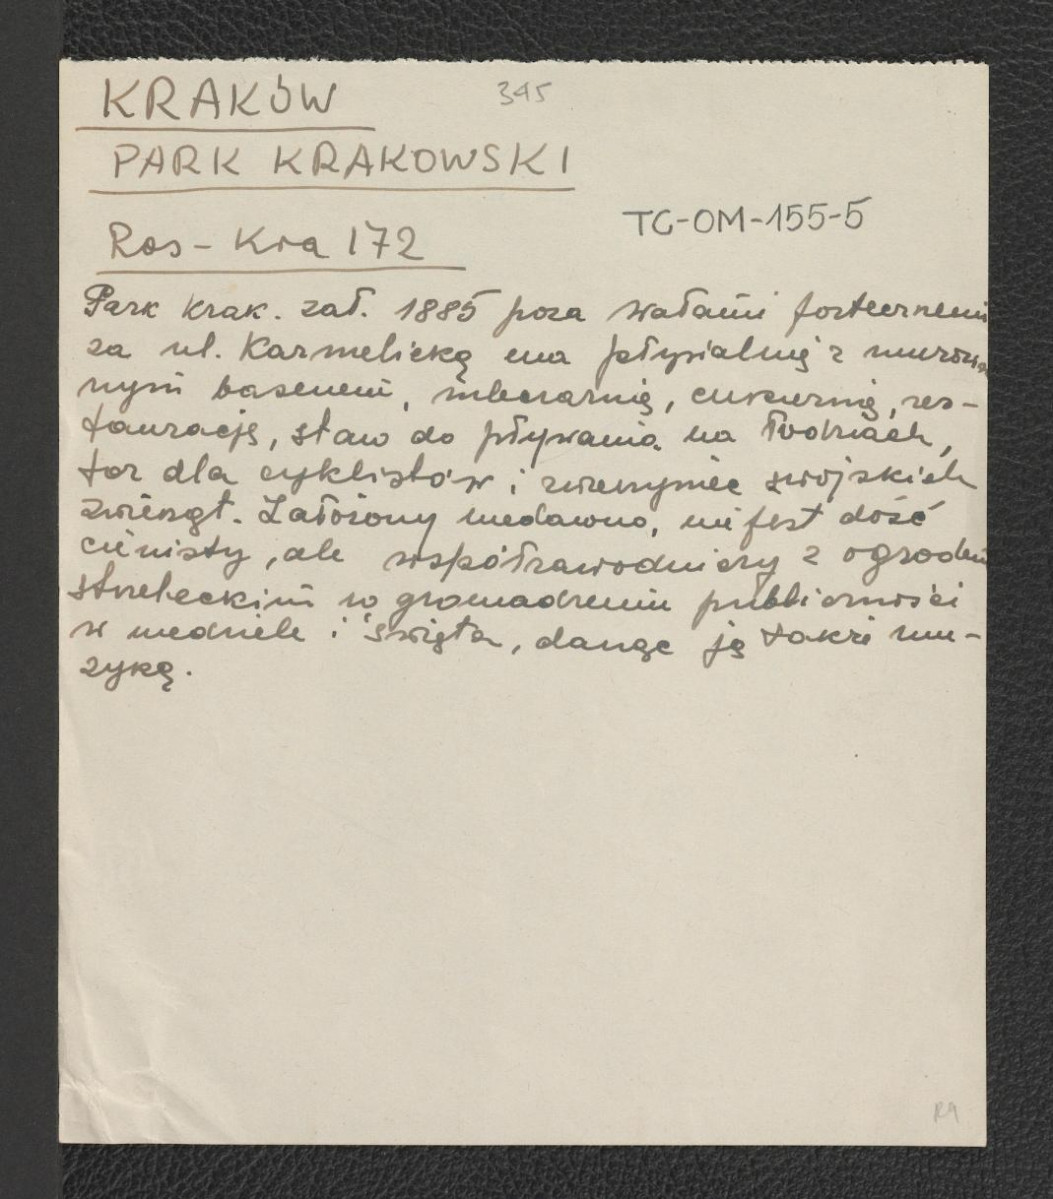 KRAKÓW
345
PARK KRAKOWSKI
TG-OM-155-5
Ros - Kra 172
Park krak. zał. 1885 poza wałami fortecznemi
za ul. Karmelicką ma pływialnię z murowa
nym basenem, mleczarnię, cukiernię, res-
taurację, staw do pływania na łodziach,
tor dla cyklistów i zwierzyniec swojskich
zwierząt. Założony niedawno, nie jest dość
cienisty, ale współzawodniczy z ogrodem
strzeleckim w gromadzeniu publiczności
w niedziele i święta, dając ją także mu-
zyką.
R9